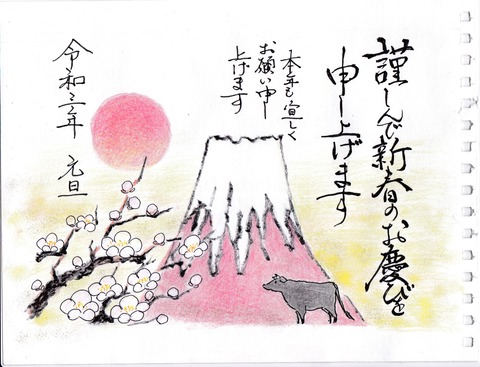 謹しんで新春のお慶びを
申し上げます
本年も宜しく
お願い申し
上げます
令和三年 元旦